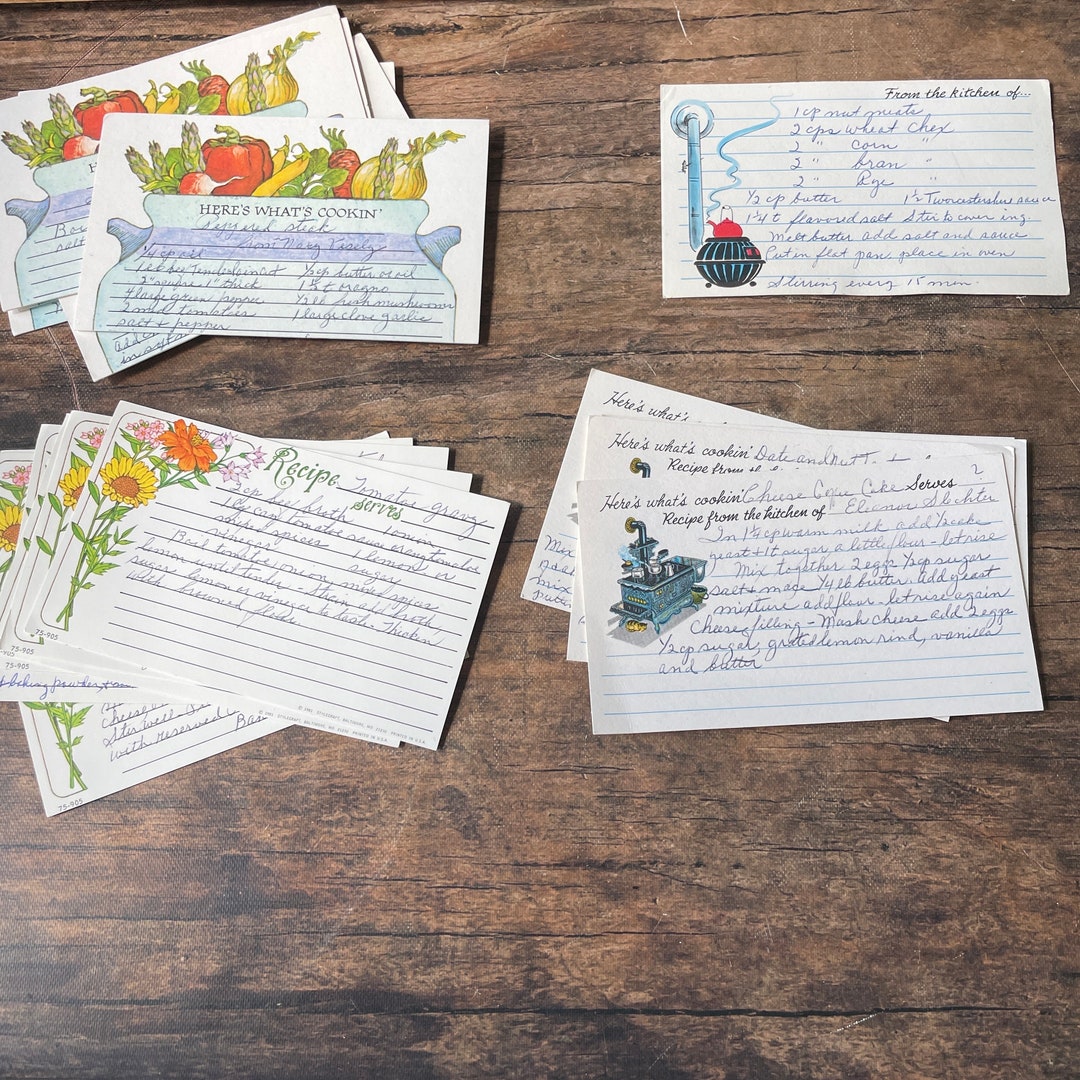 HERE'S WHAT'S COOKIN'
Peppered steak
from Mary
1/4 cp oil
Tenderloin cut
1/2 cp butter or oil
2" square 1" thick
1 1/2 t oragno
4 large green pepper
1/2 lb fresh mushrooms
2 med tomatoes
1 large clove garlic
salt + pepper
add
in
salt
From the kitchen of...
1 cp nut meats
2 cps wheat Chex
2 " Corn "
2 " bran "
2 " Rye "
1/2 cp butter
1 1/2 T worcestershire sauce
1 1/4 t flavored salt Stir to cover ing
Melt butter add salt and sauce
Put in flat pan, place in oven
Stirring every 15 min.
Recipe Tomatoe gravy
serves
cp beef broth
1 lg can tomatoe sauce or
minced onion
mixed spices
1 lemon or
vinegar
sugar
Boil tomatoe onion, mixed spices
until tender - Strain add broth
sugar, lemon or vinegar to taste - Thicken
with browned flour
75-905
75-905
baking powder +
cheese
Stir well.
with reserved
75-905
© 1981 STYLECRAFT, BALTIMORE, MD. 21230 PRINTED IN U.S.A.
Here's what's
Mix
mix
Here's what's cookin' Date and Nut
Recipe from
Here's what's cookin' Cheese Cake Serves
Recipe from the kitchen of Eleanor
2
In 1/4 cp warm milk add 1/2 cake
yeast + 1 t sugar a little flour - let rise
Mix together 2 eggs 1/2 cp sugar
salt + 1/4 lb butter. add yeast
mixture add flour - let rise again
Cheese filling - Mash cheese add 2 eggs
1/2 cp sugar, grated lemon rind, vanilla
and butter